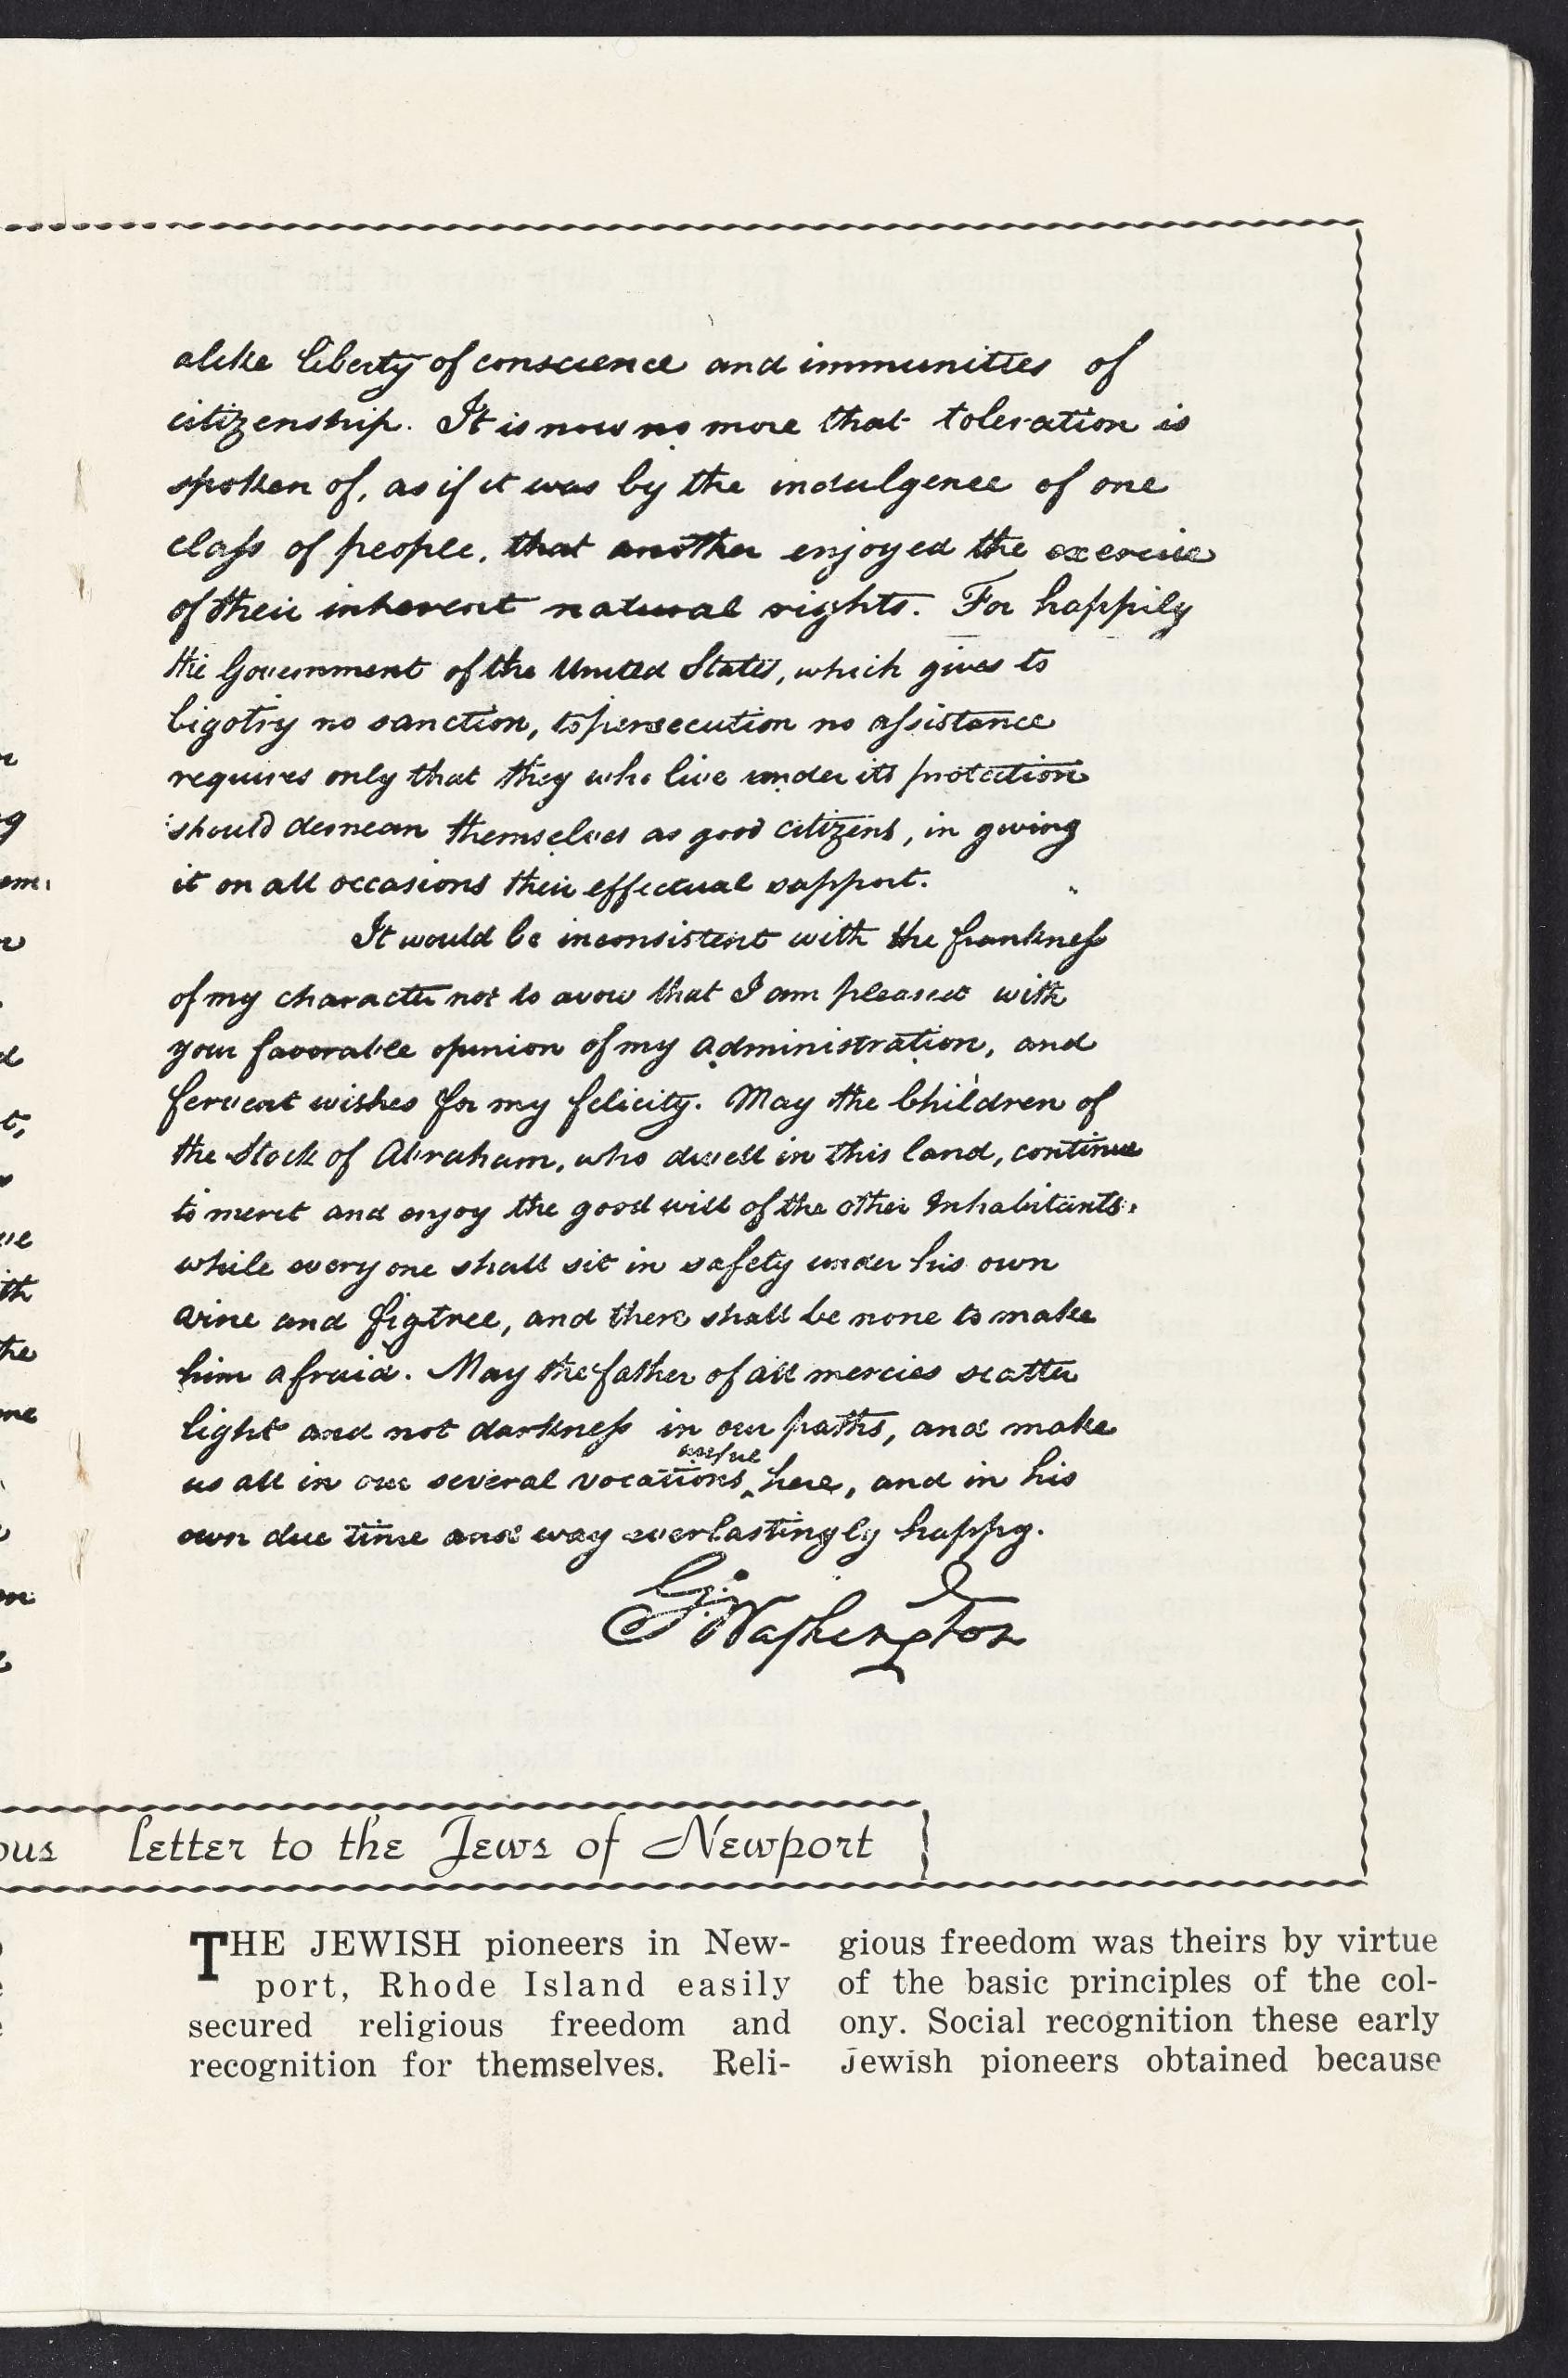 alike liberty of conscience and immunities of
citizenship. It is now no more that toleration is
spoken of, as if it was by the indulgence of one
class of people, that another enjoyed the exercise
of their inherent natural rights. For happily
the Government of the United States, which gives to
bigotry no sanction, to persecution no assistance
requires only that they who live under its protection
should demean themselves as good citizens, in giving
it on all occasions their effectual support.
It would be inconsistent with the frankness
of my character not to avow that I am pleased with
your favorable opinion of my administration, and
fervent wishes for my felicity. May the Children of
the Stock of Abraham, who dwell in this land, continue
to merit and enjoy the good will of the other Inhabitants,
while every one shall sit in safety under his own
vine and figtree, and there shall be none to make
him afraid. May the father of all mercies scatter
light and not darkness in our paths, and make
useful
us all in our several vocations ‸ here, and in his
own due time and way everlastingly happy.
G. Washington
ous letter to the Jews of Newport
THE JEWISH pioneers in New-
port, Rhode Island easily
secured religious freedom and
recognition for themselves. Reli-
gious freedom was theirs by virtue
of the basic principles of the col-
ony. Social recognition these early
Jewish pioneers obtained because